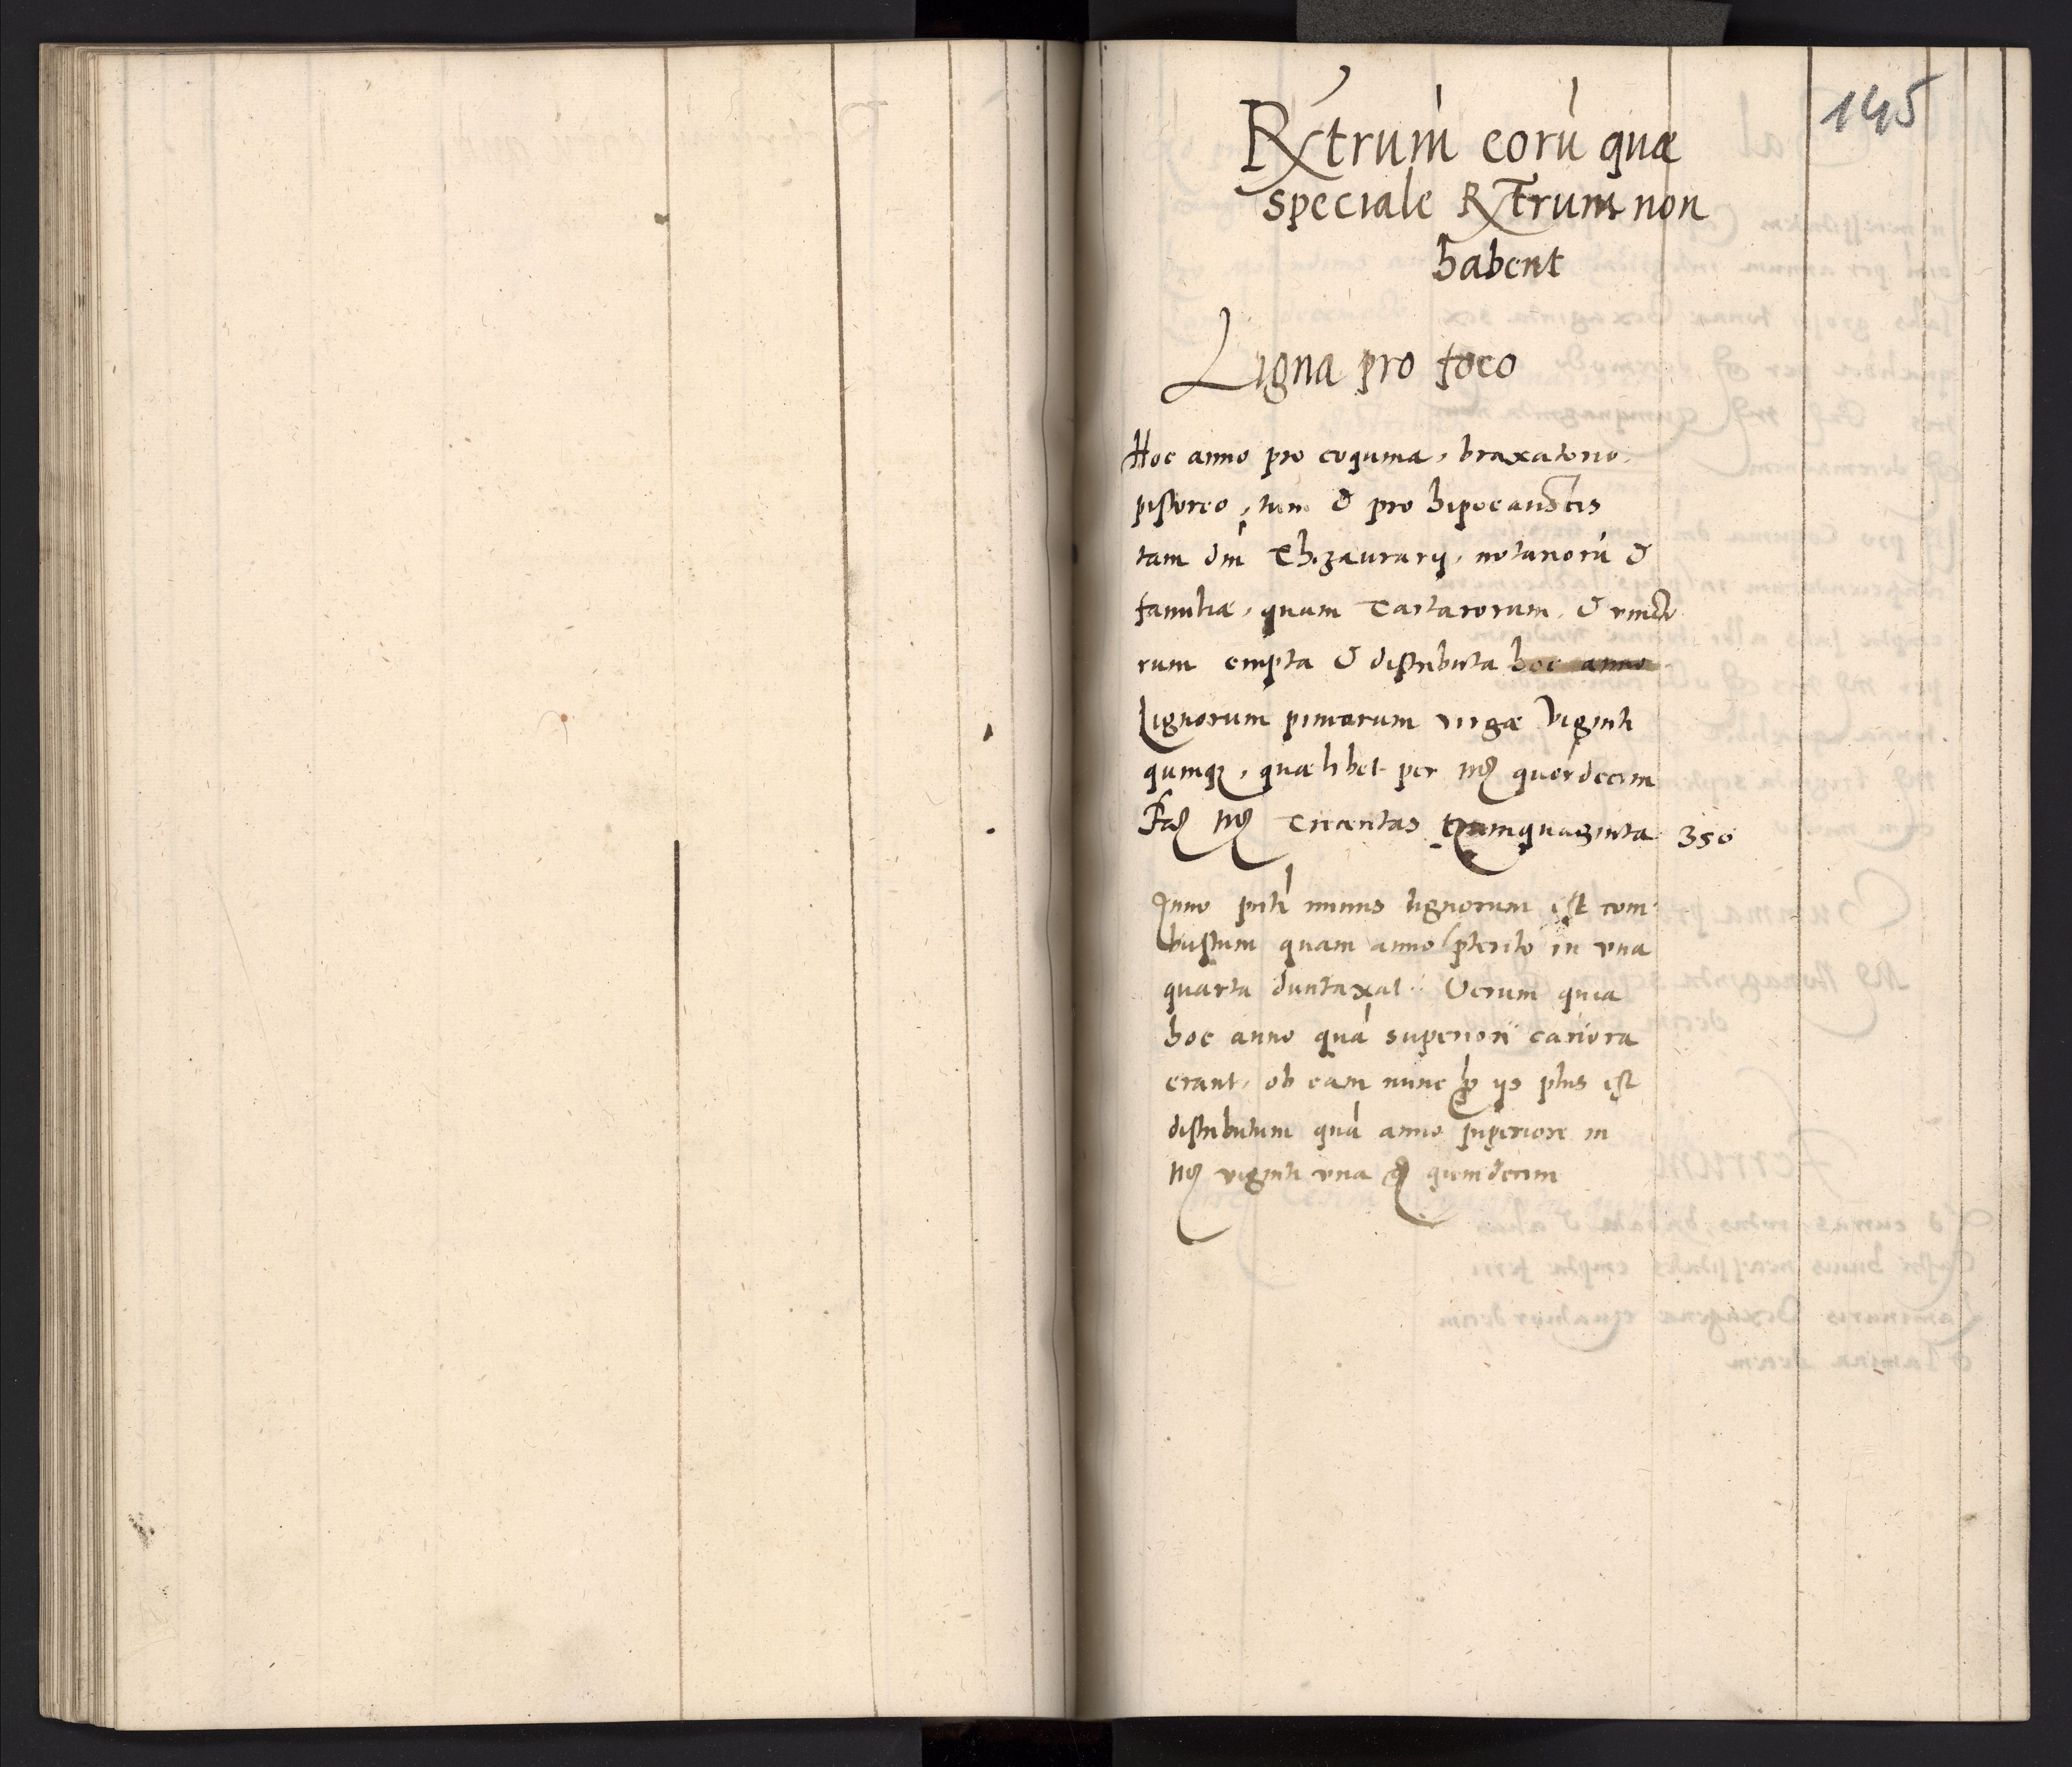 145
Rxtrum eorú quæ
speciale Rxtrum non
habent
Ligna pro foco
Hoc anno pro coquina, braxatorio,
pistoreo, tum & pro hipocaustis
tam dm̄ Thezaurarij, notariorú &
familiæ, quam Tartarorum, & vincto
rum empta & distributa hoc anno
Lignorum pinearum virgæ Viginti
quinq3, quælibet per mꝝ quordecim
Facꝭ mꝝ Trecentas Quinquaginta 350
Anno pnti minus lignorum est com
bustum quam anno pterito in vna
quarta duntaxat: Verum quia
hoc anno quá superiori cariora
erant, ob eam nunc ꝓ ijs plus est
distributum quá anno superiore in
mꝝ viginti vna gꝝ quindecim